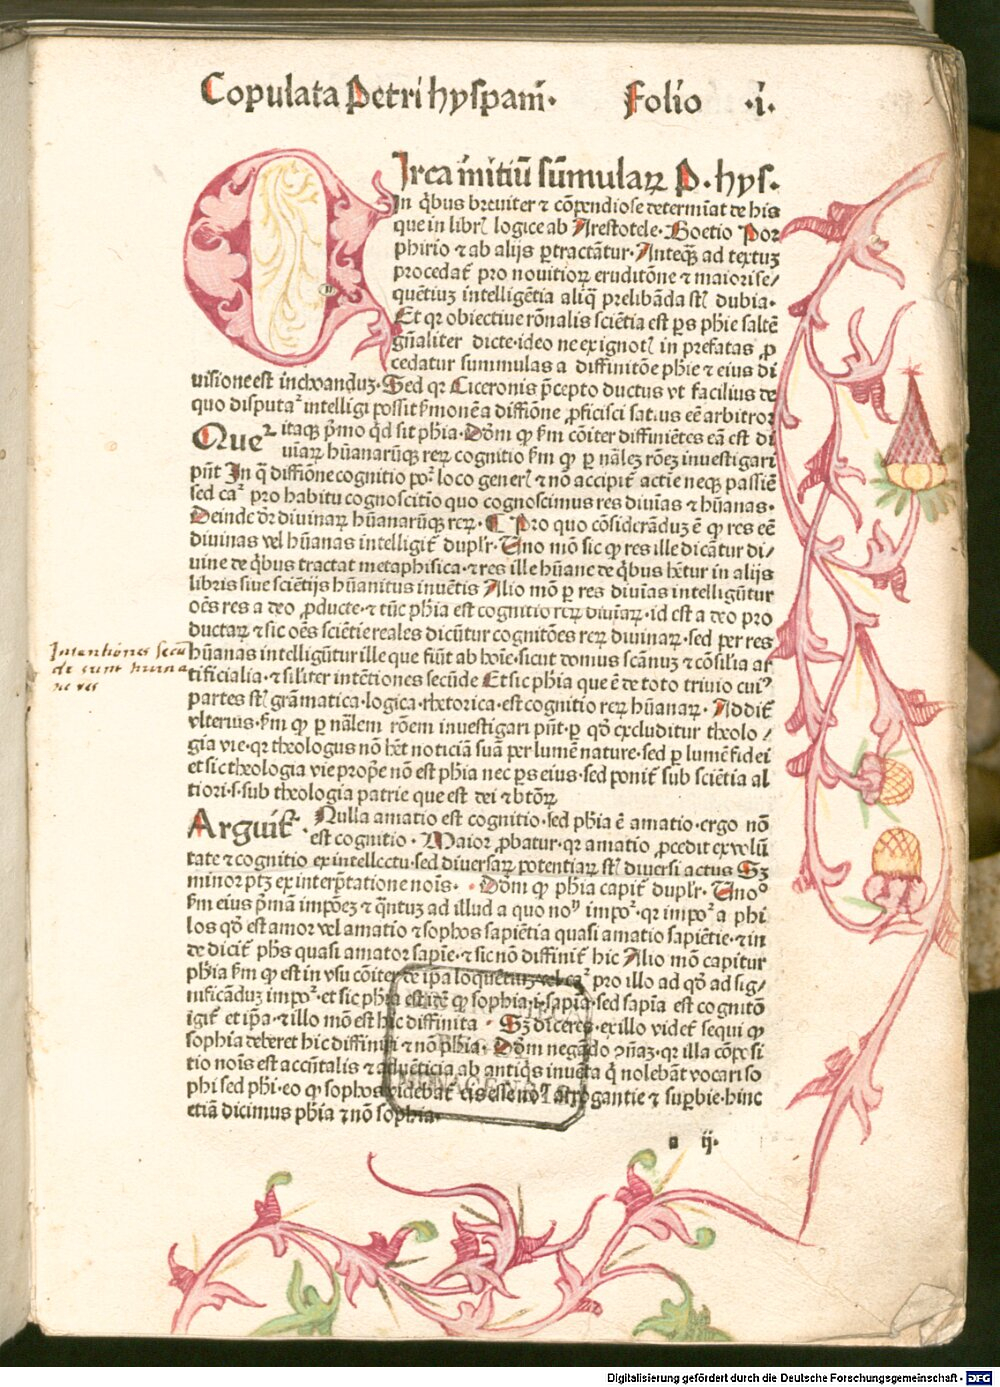 Copulata Petri hyspani· Folio ·i·
CIrca initiū sūmularꝝ P·hys·
In q̄bus breuiter ⁊ cōpendiose determiat de his
que in libr̄ logice ab Arestotele·Boetio Por
phirio ⁊ ab alijs ꝑtractātur·Anteqꝫ ad textuꝫ
procedat̄ pro nouitiorꝝ eruditōne ⁊ maiori se/
quētiuꝫ intelligētia aliq̄ prelibāda st̄ dubia·
Et qꝛ obiectiue rōnalis sciētia est ꝑs phie saltē
gn̄aliter dicte·ideo ne ex ignot̄ in prefatas ꝓ
cedatur summulas a diffinitōe phie ⁊ eius di
uisione est inchoanduꝫ·Sed qꝛ Ciceronis p̄cepto ductus vt facilius de
quo disputaꝛ intelligi possit ẜmonē a diffiōne ꝓficisci satius eē arbitror
Queꝛ itaqꝫ p̄mo qd̄ sit phia·Dōm ꝙ ẜm cōiter diffiniētes eā est di
uiarꝝ hūanarūqꝫ rerꝝ cognitio ẜm ꝙ ꝑ nālez rōez inuestigari
pn̄t In q̄ diffiōne cognitio poꝛ loco gener̄ ⁊ nō accipit̄ actie neqꝫ passiē
sed caꝛ pro habitu cognoscitio quo cognoscimus res diuias ⁊ hūanas·
Deinde dꝛ diuinarꝝ hūanarūqꝫ rerꝝ·¶ Pro quo cōsiderāduꝫ ē ꝙ res eē
diuinas vel hūanas intelligit̄ duplr̄·Uno mō sic ꝙ res ille dicātur di/
uine de q̄bus tractat metaphisica·⁊ res ille hūane de q̄bus hētur in alijs
libris siue sciētijs hūanitus inuētis Alio mō ꝑ res diuias intelligūtur
oēs res a deo ꝓducte·⁊ tūc phia est cognitio rerꝝ diuiarꝝ·id est a deo pro
ductarꝝ ⁊ sic oēs sciētie reales dicūtur cognitōes rerꝝ diuinarꝝ·sed per res
hūanas intelligūtur ille que fiūt ab hoīe·sicut domus scānuꝫ ⁊ cōsilia ar
tificialia·⁊ siliter intētiones secūde Et sic phia que ē de toto triuio cuiꝰ
partes st̄ grāmatica·logica·rhetorica·est cognitio rerꝝ hūanarꝝ· Addit̄
vlterius·ẜm ꝙ ꝑ nālem rōem inuestigari pn̄t·ꝑ qd̄ excluditur theolo/
gia vie·qꝛ theologus nō hēt noticiā suā per lumē nature·sed ꝑ lumē fidei
et sic theologia vie prop̄e nō est phia nec ꝑs eius·sed ponit̄ sub sciētia al
tiori·s·sub theologia patrie que est dei ⁊ btōrꝝ
Arguit̄· Nulla amatio est cognitio·sed phia ē amatio·ergo nō
est cognitio· Maior ꝓbatur·qꝛ amatio ꝓcedit ex volū
tate ⁊ cognitio ex intellectu·sed diuersarꝝ potentiarꝝ st̄ diuersi actus Sꝫ
minor ptꝫ ex interp̄tatione nois· · Dōm ꝙ phia capit̄ duplr̄·Uno°
ẜm eius p̄mā impōez ⁊ q̄ntuꝫ ad illud a quo noⁿ impoꝛ·qꝛ impoꝛ a phi
los qd̄ est amor vel amatio ⁊ sophos sapiētia quasi amatio sapiētie·⁊ in
de dicit̄ phs quasi amator sapie·⁊ sic nō diffinit̄ hic Alio mō capitur
phia ẜm ꝙ est in vsu cōiter de ip̄a loquētiuꝫ vel caꝛ pro illo ad qd̄ ad sig/
nificāduꝫ impoꝛ·et sic phia est idē ꝙ sophia·i·sapia·sed sapia est cognitō
igit̄ et ip̄a·⁊ illo mō est hic diffinita · Sꝫ diceres·ex illo videt̄ sequi ꝙ
sophia deberet hic diffiniri ⁊ nō phia· Dōm negādo ɔñaꝫ·qꝛ illa cōpositio
tio nois est accn̄talis ⁊ aduēticia ab antiq̄s inuēta q̄ nolebāt vocari so
phi sed phi·eo ꝙ sophos videbat̄ eis esse nom̄ arrogantie ⁊ suꝑbie·hinc
etiā dicimus phia ⁊ nō sophia·
a ij·
Intentiones secū
de sunt huma
ne res
Digitalisierung gefördert durch die Deutsche Forschungsgemeinschaft · DFG